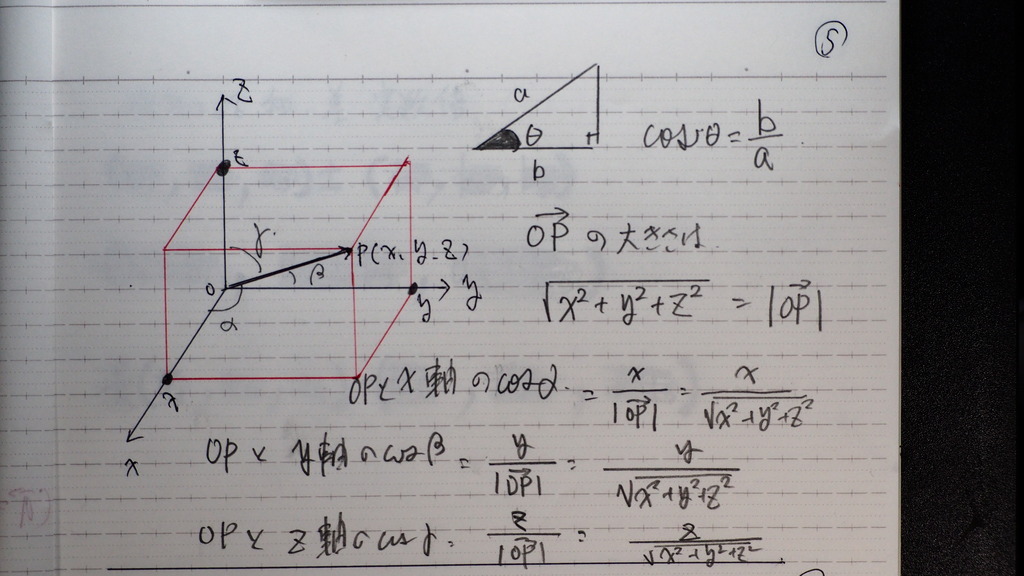 ⑤
z
z
a
θ
b
cosθ = b/a
γ
P(x, y, z)
β
O
α
y
y
x
x
→OP の大きさは
√(x²+y²+z²) = |→OP|
OPと x軸のcosα = x/|→OP| = x/√(x²+y²+z²)
OPと y軸のcosβ = y/|→OP| = y/√(x²+y²+z²)
OPと z軸のcosγ = z/|→OP| = z/√(x²+y²+z²)